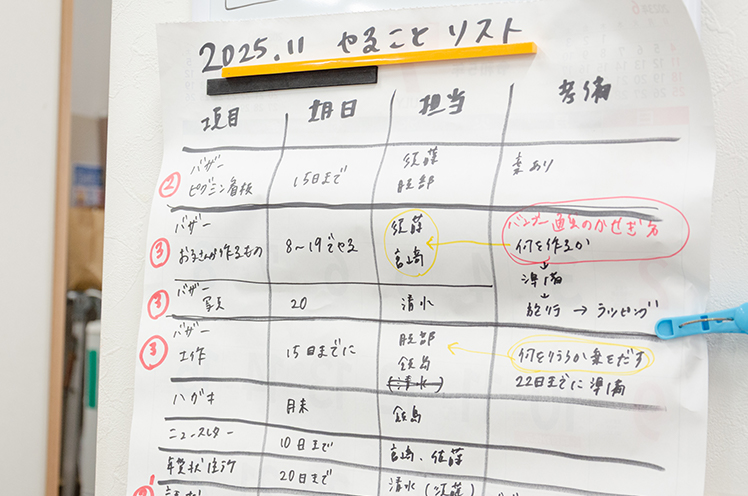 2025.11 やること リスト
項目 期日 担当 考備
② バザー ピクミン看板 15日まで 須藤 服部 案あり
③ バザー お子さんが作るもの 8〜19でやる 須藤 宮崎 バンナー 過去のかせぎ方 何を作るか
↓
準備
↓
旅行 → ラッピング
③ バザー 写真 20 清水
③ バザー 工作 15日までに 服部 飯島 (清水) 何をうるか案をだす
22日までに準備
ハガキ 月末 飯島
ニュースレター 10日まで 宮崎、佐藤
年賀状住所 20日まで 清水(須藤)